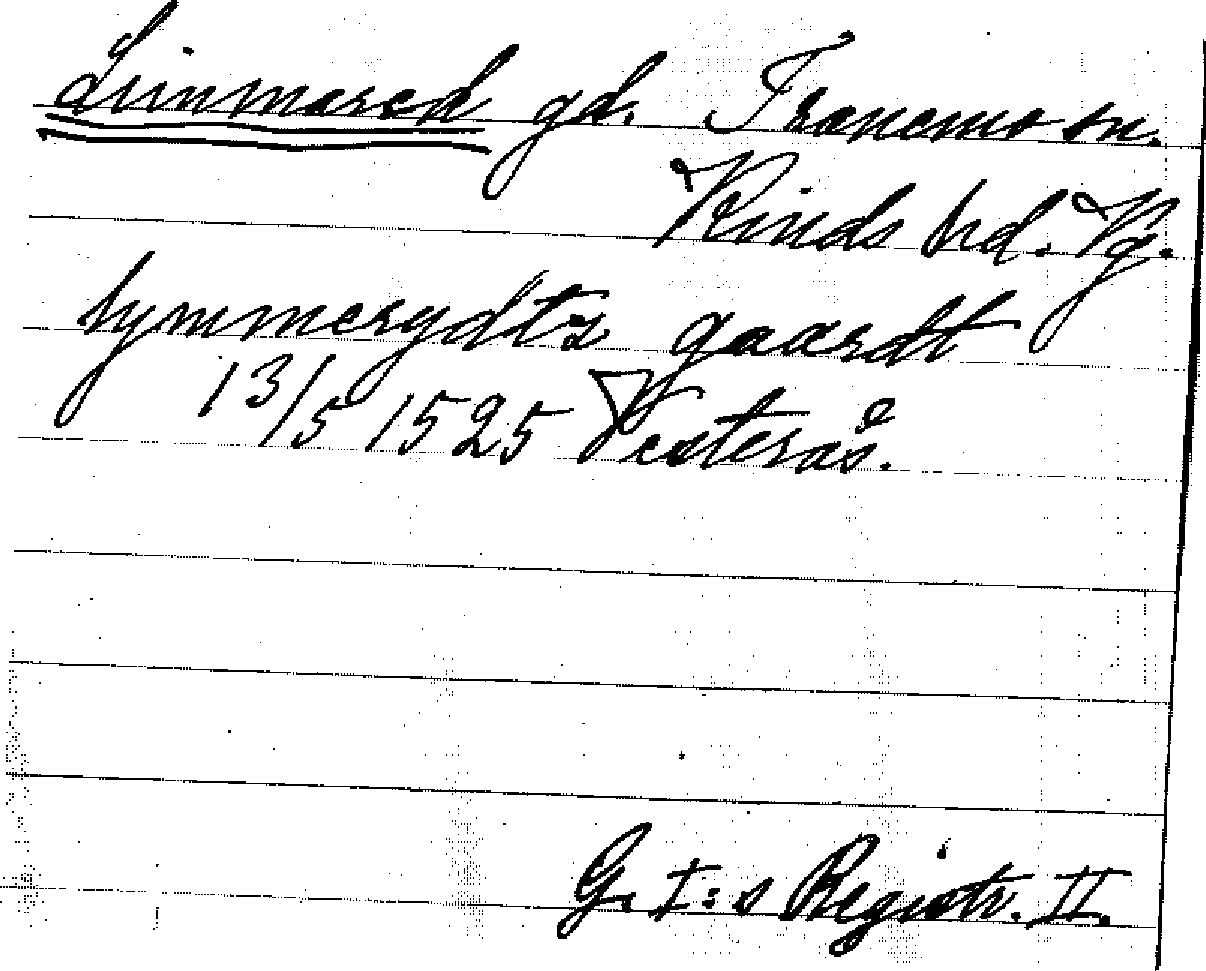 Limmared gd. Tranemo sn.
Kinds hd. Vg.
lymmerydtz gaardt
13/5 1525 Vesterås.
G. I:s Registr. II.